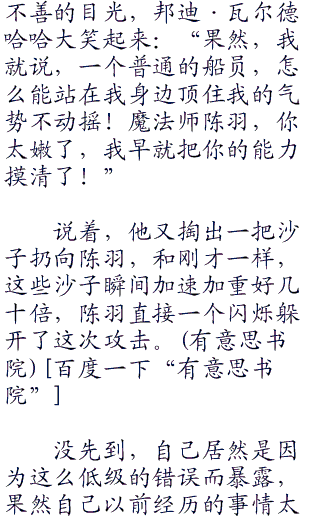 不善的目光，邦迪·瓦尔德
哈哈大笑起来：“果然，我
就说，一个普通的船员，怎
么能站在我身边顶住我的气
势不动摇！魔法师陈羽，你
太嫩了，我早就把你的能力
摸清了！”
说着，他又掏出一把沙
子扔向陈羽，和刚才一样，
这些沙子瞬间加速加重好几
十倍，陈羽直接一个闪烁躲
开了这次攻击。(有意思书
院)[百度一下“有意思书
院”]
没先到，自己居然是因
为这么低级的错误而暴露，
果然自己以前经历的事情太